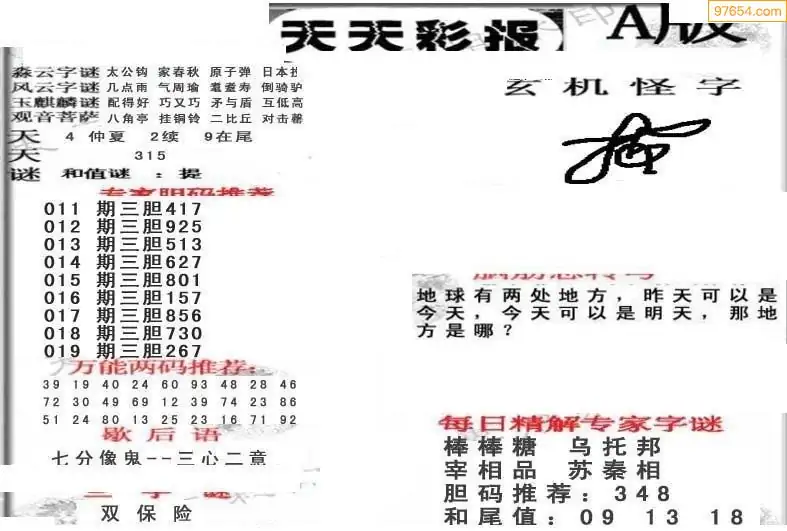 97654.com
天天彩报 A版
森云字谜 太公钩 家春秋 原子弹 日本
风云字谜 几点雨 气周瑜 耄耋寿 倒骑驴
玉麒麟谜 配得好 巧又巧 矛与盾 互低高
观音菩萨 八角亭 挂铜铃 二比丘 对击磬
天 4 仲夏 2续 9在尾
天 315
谜 和值谜 : 提
专家胆码推荐
011 期三胆417
012 期三胆925
013 期三胆513
014 期三胆627
015 期三胆801
016 期三胆157
017 期三胆856
018 期三胆730
019 期三胆267
万能两码推荐:
39 19 40 24 60 93 48 28 46
72 30 49 69 12 39 74 23 86
51 24 80 13 25 23 16 71 92
歇后语
七分像鬼--三心二意
三字谜
双保险
玄机怪字
脑筋急转弯
地球有两处地方，昨天可以是
今天，今天可以是明天，那地
方是哪？
每日精解专家字谜
棒棒糖 乌托邦
宰相品 苏秦相
胆码推荐：348
和尾值：09 13 18